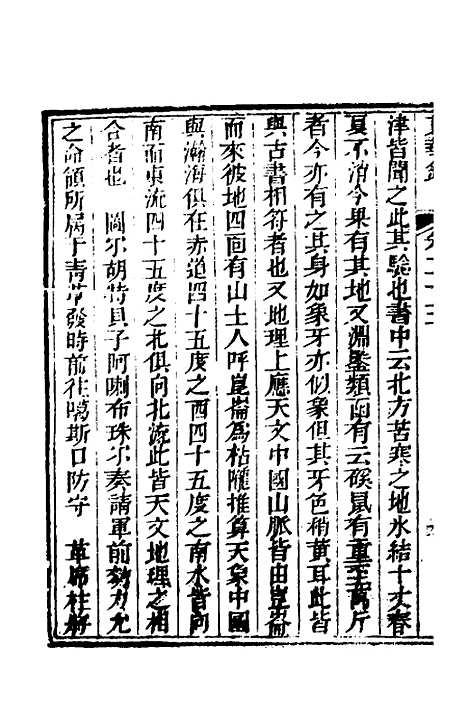 津皆聞之此其驗也書中云北方苦寒之地氷結十丈春
夏不消今果有其地又淵鑒類函有云磎鼠有重至萬斤
者今亦有之其身如象牙亦似象但其牙色稍黄耳此皆
與古書相符者也又地理上應天文中國山脈皆由崑崙
而來彼地四面有山土人呼崑崙爲枯隴推算天象中國
與瀚海俱在赤道四十五度之西四十五度之南水皆向
南而東流四十五度之北俱向北流此皆天文地理之相
合者也　圖尓胡特貝子阿喇布珠尓奏請軍前効力允
之命領所屬于青草發時前往噶斯口防守　革席柱將